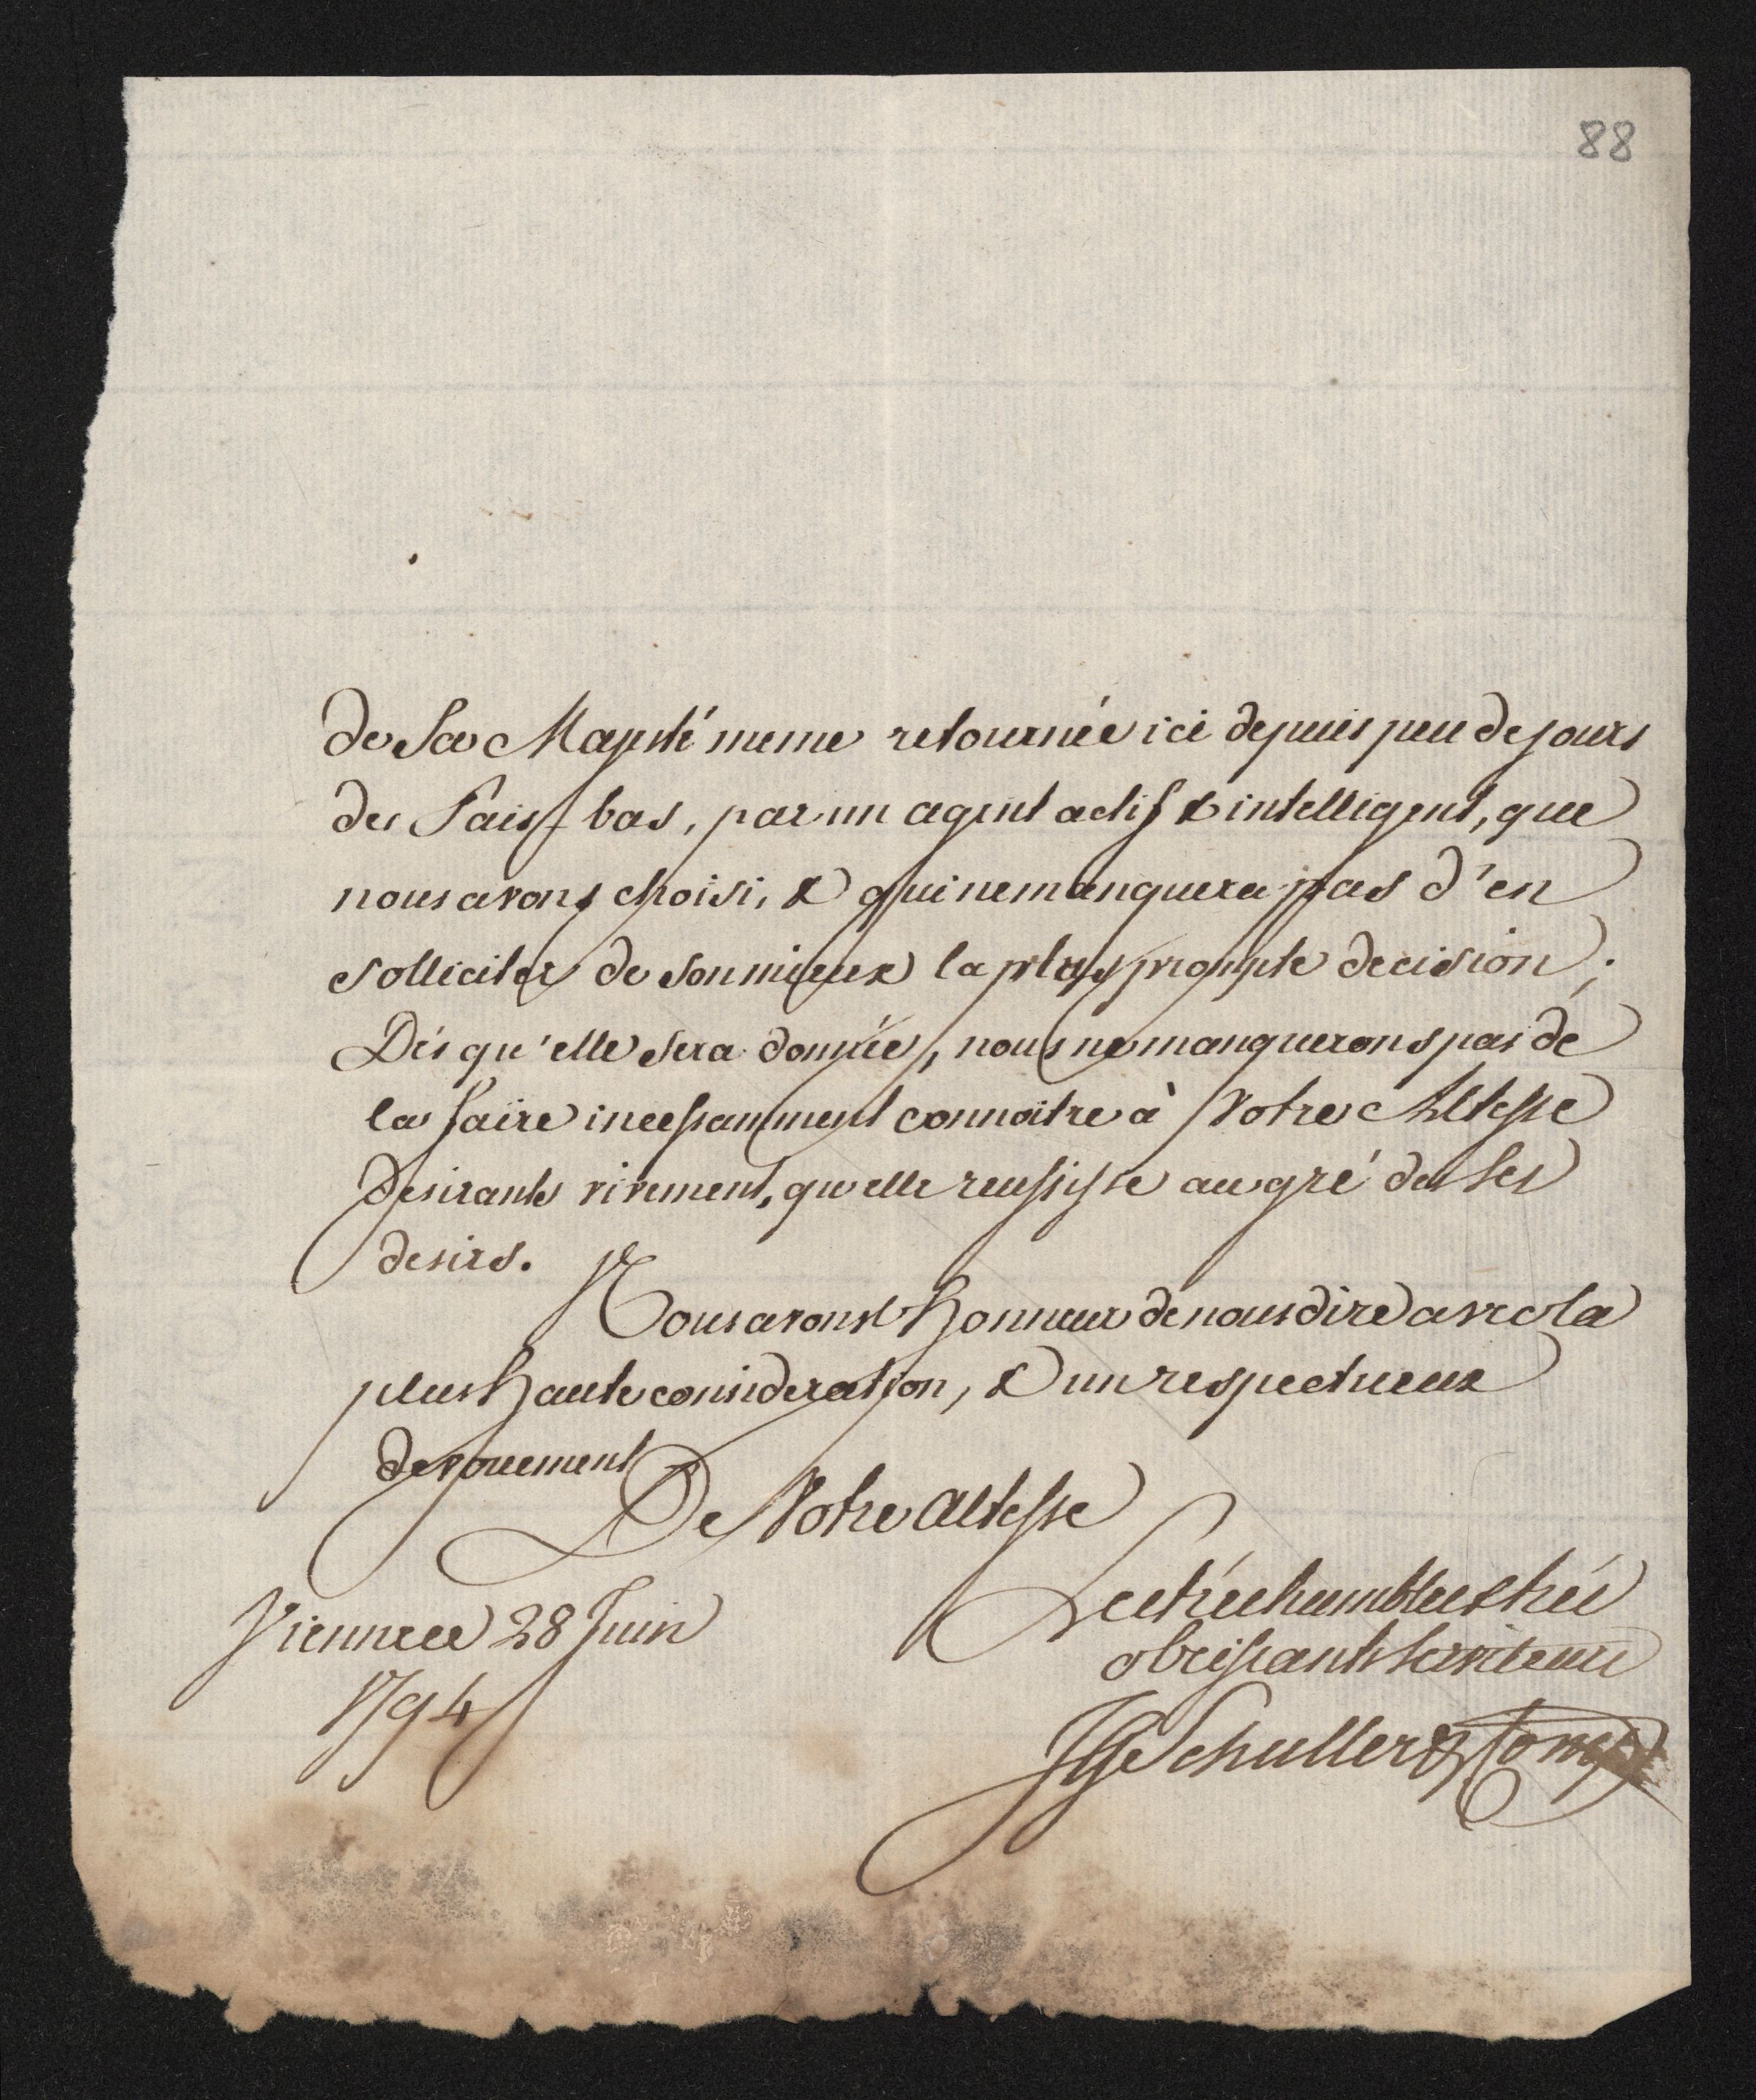 88
de Sa Majesté meme retournée ici depuis peu de jours
des Paisf bas, par un agent actif & intelligent, que
nous avons choisi, & qui ne manquera pas d'en
solliciter de son mieux la plus prompte decision;
Dés qu'elle sera donnée, nous ne manquerons pas de
la faire incessamment connoitre à Votre Altesse
Desirants vivement, qu'elle reussisse au gré de ses
desirs.
Nous avons l'honneur de nous dire avec la
plus haute consideration, & un respectueux
devouement
De Votre Altesse
Les trés humbles & trés
obeissants serviteurs
Vienne ce 28 Juin
1794
JG Schuller & Comp